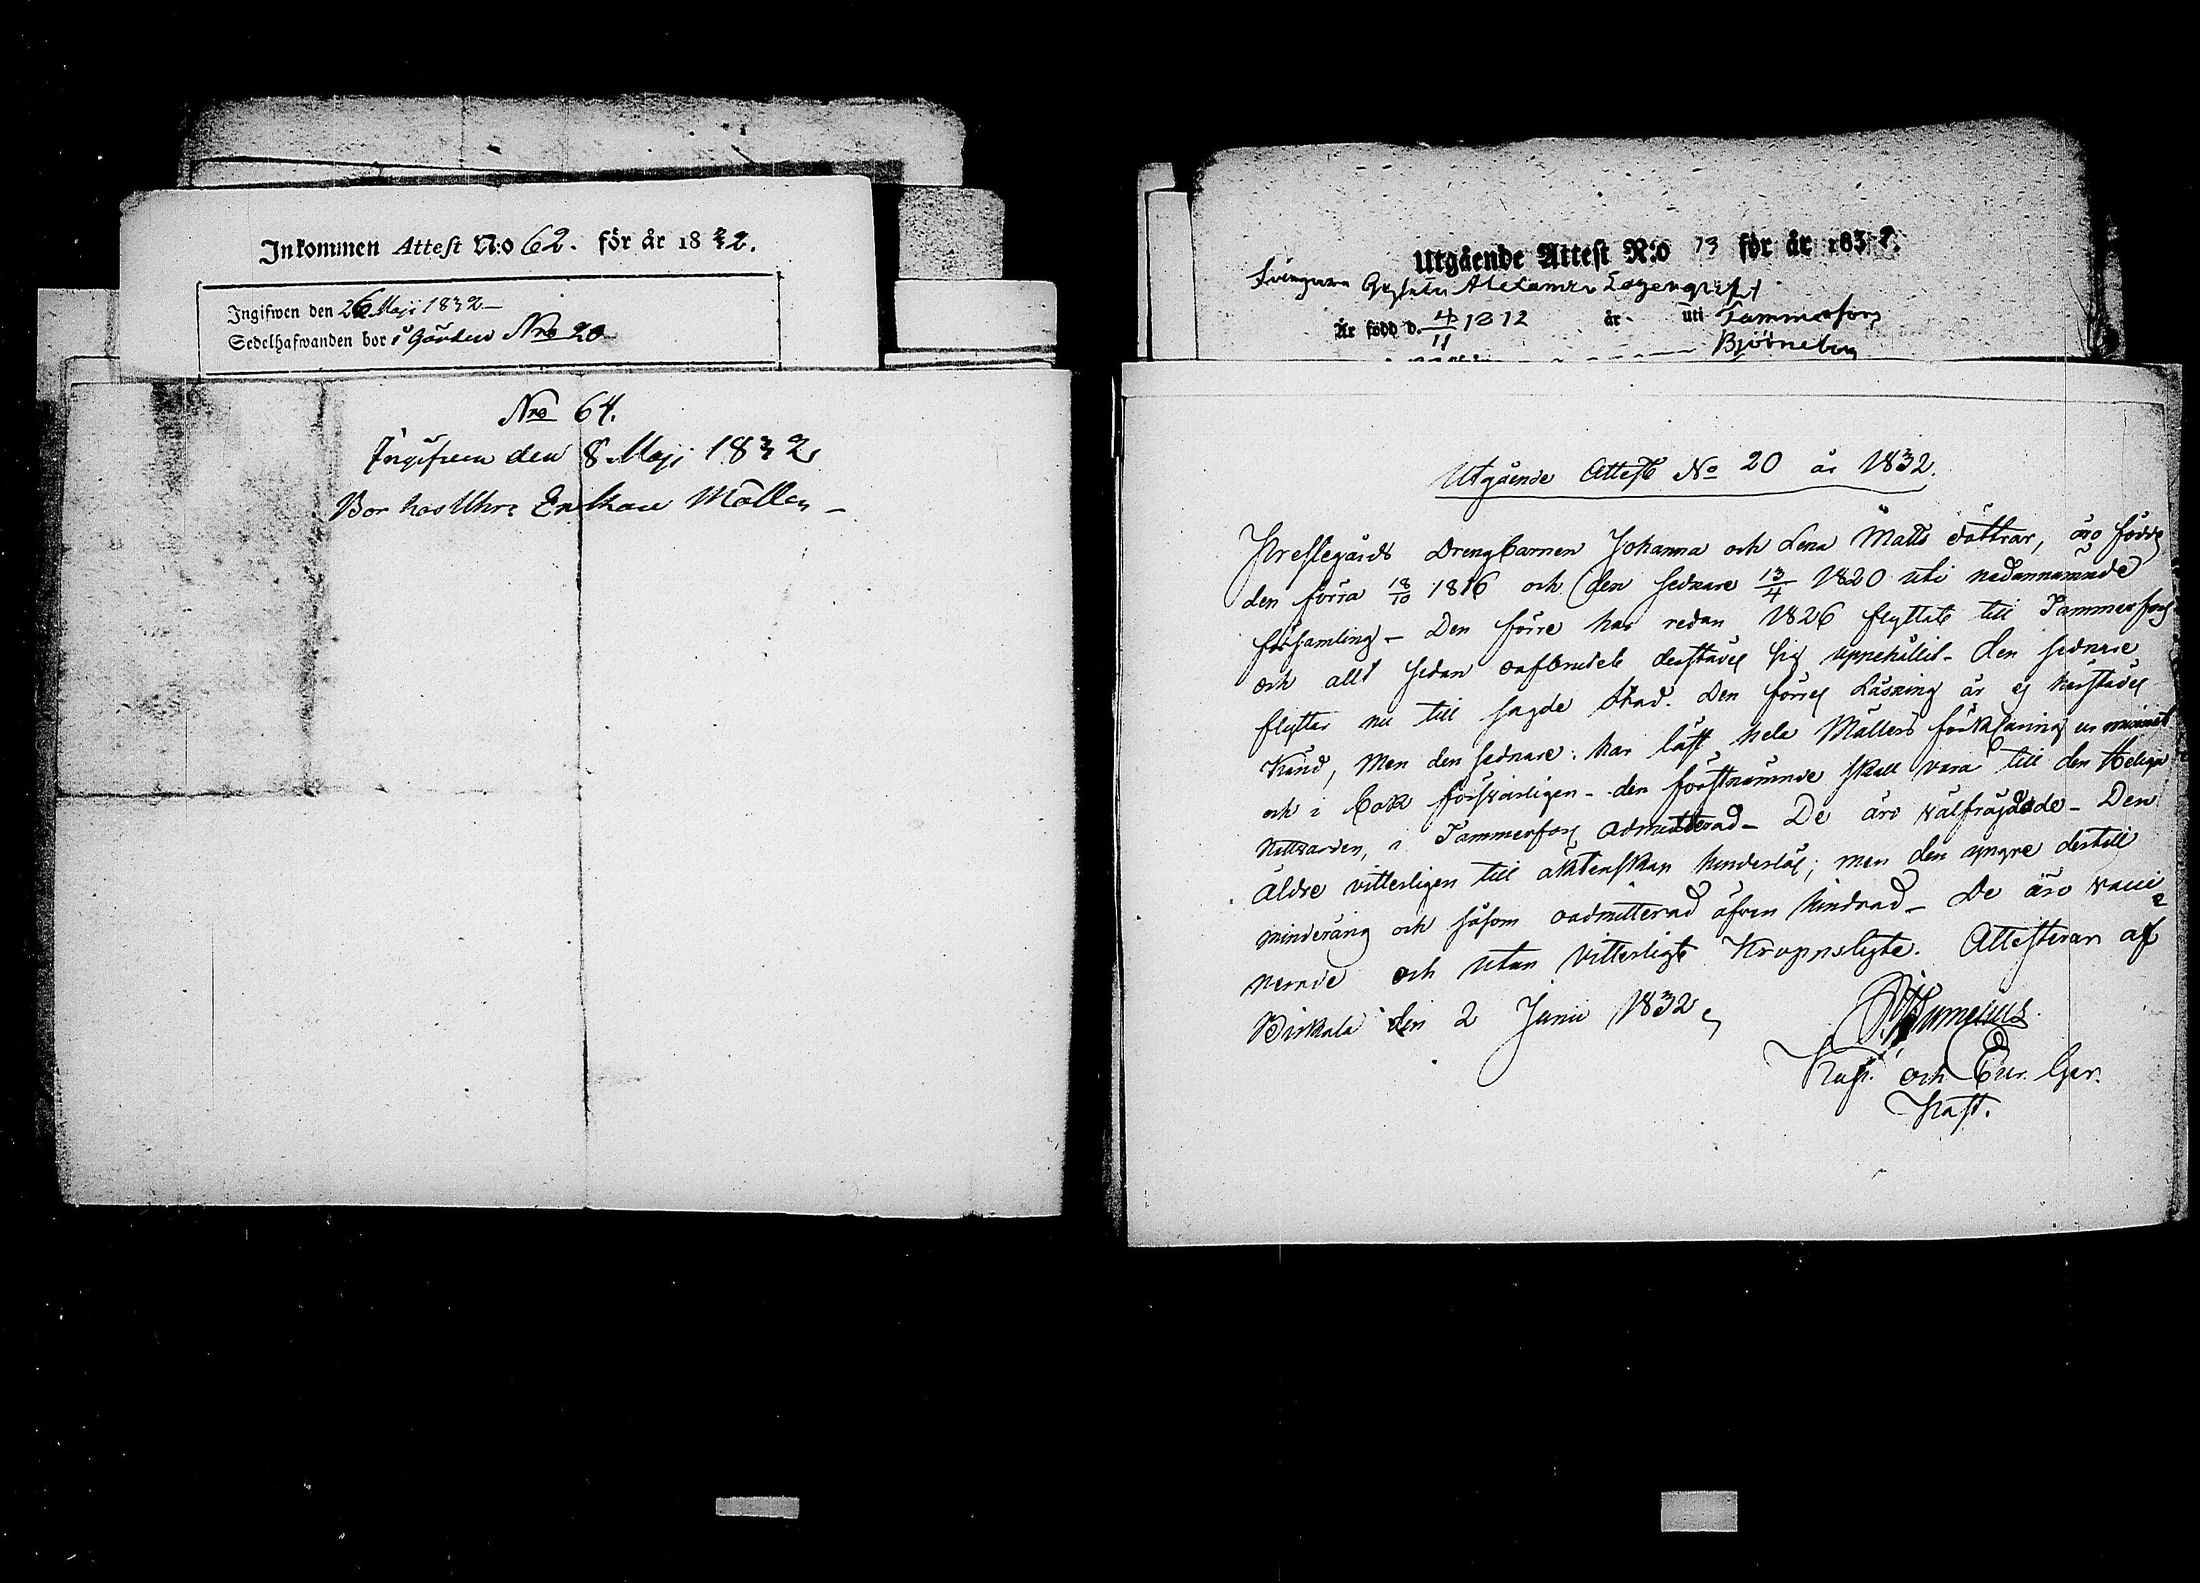 Inkommen Attest N:o 62. för år 1832.
Ingifwen den 26 Maji 1832
Sedelhafwanden bor i Gården Nro 20
Nro 64.
Ingifven den 8 Maji 1832
Bor hos Uhrm Enkan Möller
Utgående Attest N:o 13 för år 1832.
Alexander Lagerqvist
Är född d. 4/11 1812 år uti Tammerfors
Björneborg
Utgående Attest No 20 år 1832.
Prestegårds Drengbarnen Johanna och Lena Matts döttrar, äro födde
den förra 18/10 1816 och den sednare 13/4 1820 uti nedannamnde
församling – Den förre har redan 1826 flyttat till Tammerfors
och allt sedan oafbrudet derstädes sig uppehållit – den sednare
flyttar nu till sagde stad. Den förres Läsning är ej härstädes
känd, men den sednare har läst hela Möllers förklaring ur minnet
och i bok försvarligen – den förstnämnde skall vara till den Heliga
Nattvarden, i Tammerfors admitterad – De äro välfräjdade – Den
äldre vitterligen till äktenskap hinderlös; men den yngre dertill
minderårig och såsom oadmitterad äfven hindrad – De äro vacci
nerade och utan vitterligt Kroppslyte. Attesteras af
Birkala den 2 Junii 1832,
Kap. och
Past.